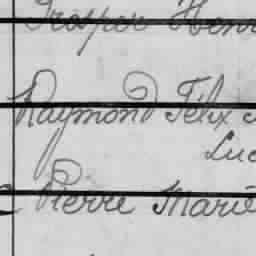 Prosper Henri
Raymond Félix
Luc
Pierre Marie